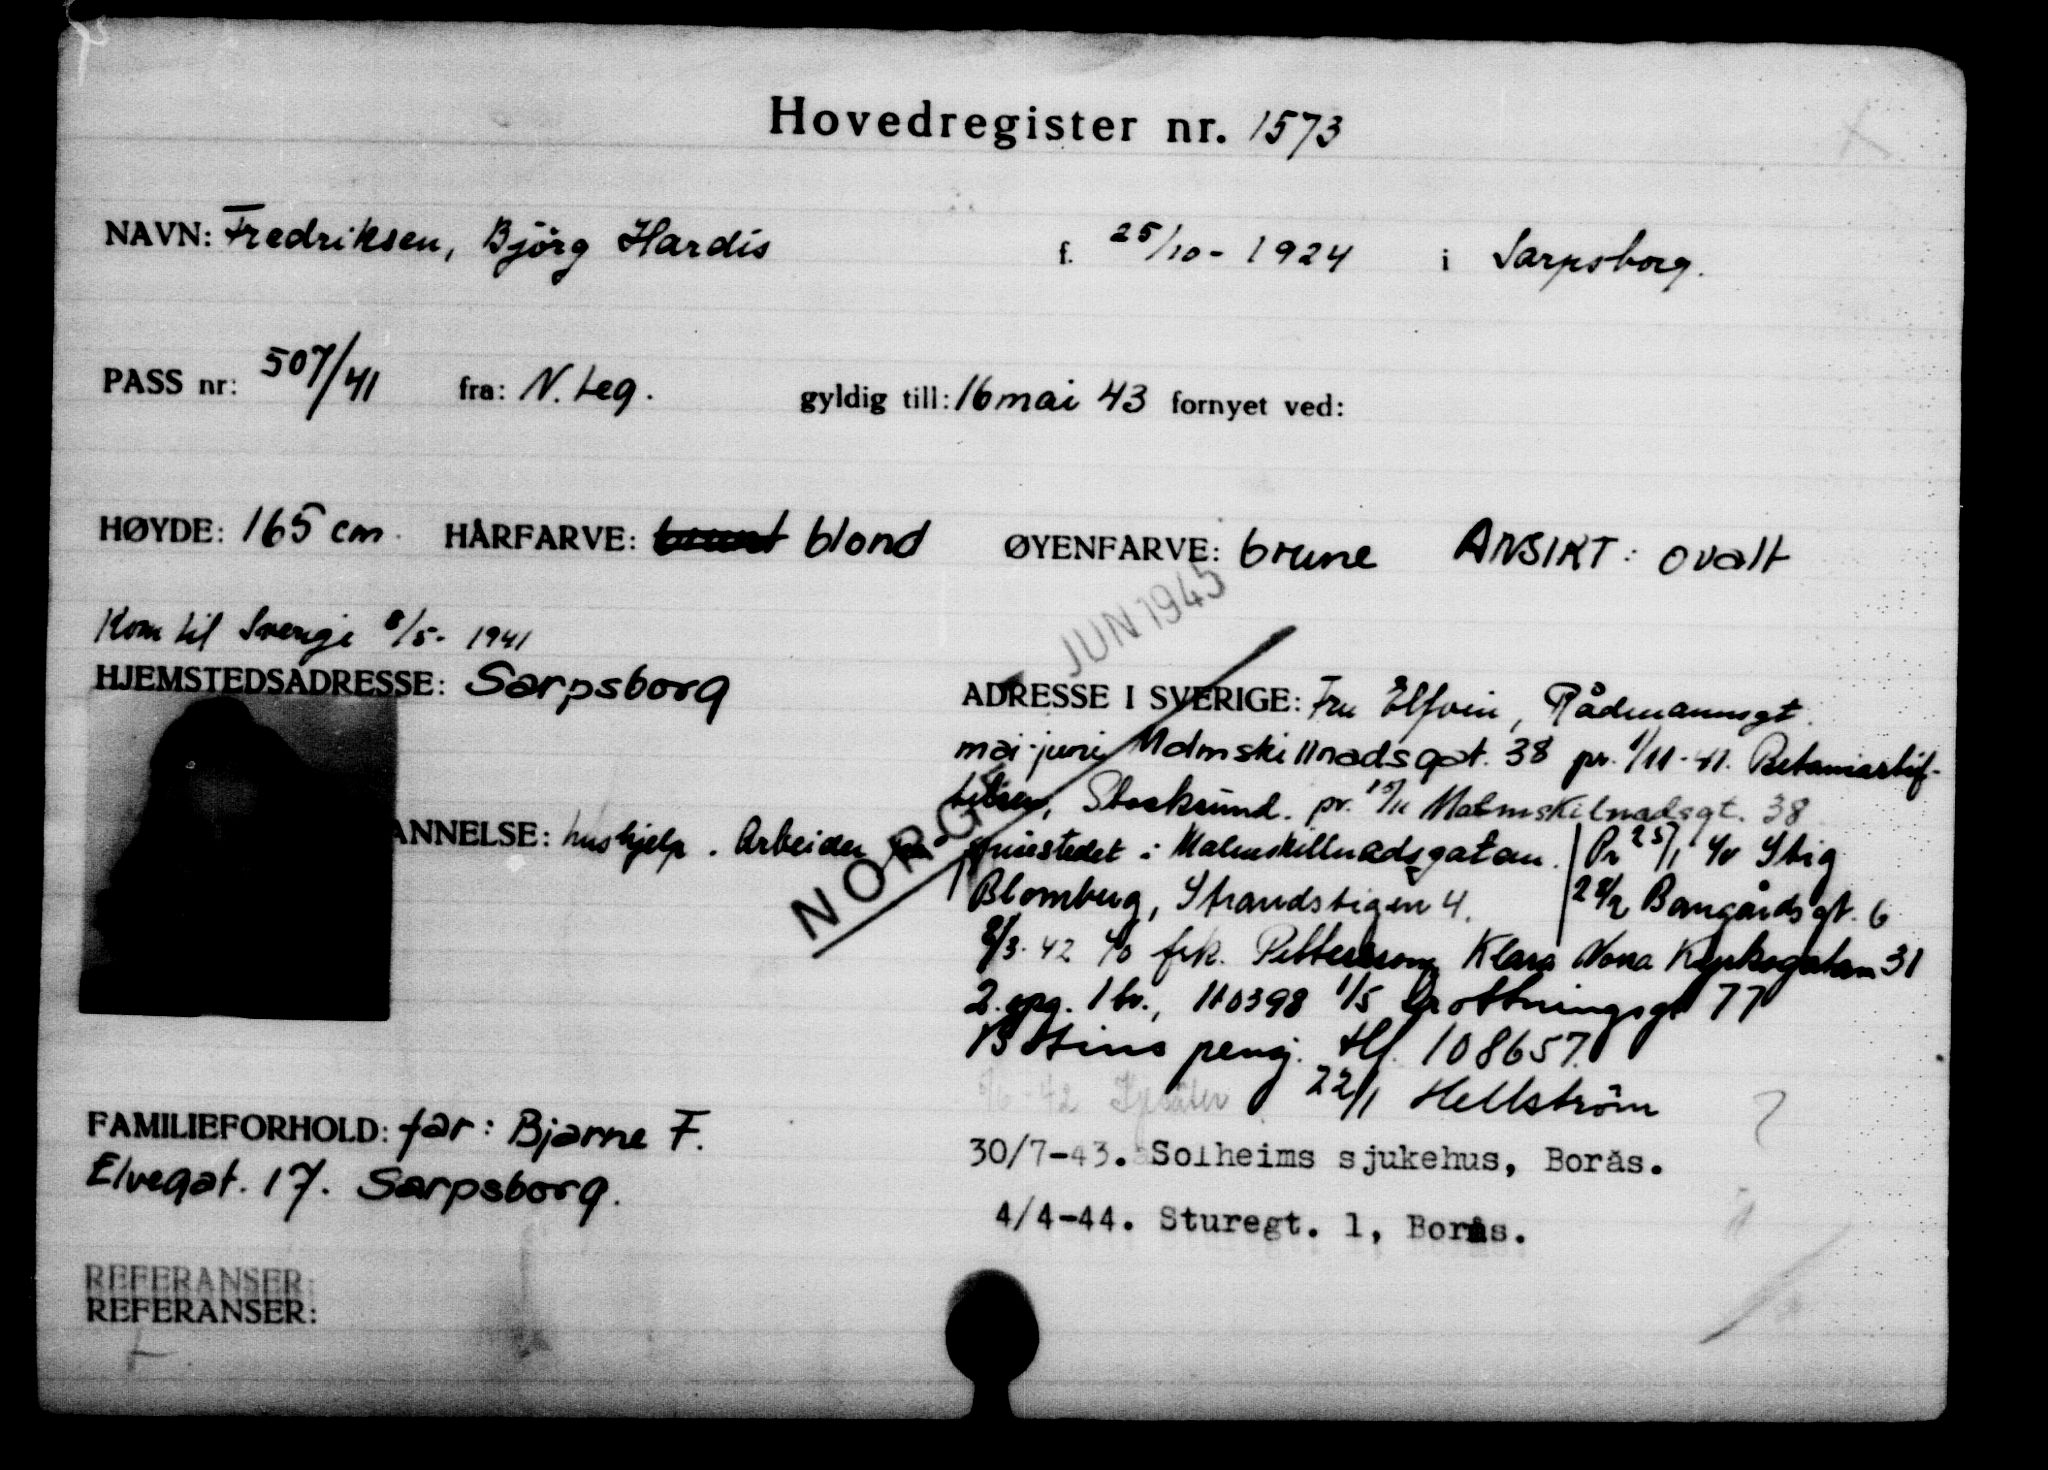 Hovedregister nr. 1573
NAVN: Fredriksen, Bjørg Hardis f. 25/10-1924 i Sarpsborg.
PASS nr: 507/41 fra: N. Leg. gyldig till: 16 mai 43 fornyet ved:
HØYDE: 165 cm. HÅRFARVE: blond ØYENFARVE: brune ANSIKT: ovalt
JUN 1945
Kom til Sverige 8/5-1941
HJEMSTEDSADRESSE: Sarpsborg
ADRESSE I SVERIGE: Fru Elfvin, Rådmannsgt.
mai-juni Malmskillnadsgat. 38 pr. 1/11-41. Betaniastif-
telsen, Stocksund. pr. 15/11 Malmskilnadsgt. 38
ANNELSE: hushjelp. Arbeider på spisestedet i Malmskillnadsgatan. Pr 25/1 c/o Stig
NORGE
Blomberg, Strandstigen 4. 28/2 Bangårdsgt. 6
8/3-42 c/o frk. Pettersson, Klara Norra Kyrkogatan 31
2. opg. 1 tr., 110398 1/5 Drottningsgt 77
Bostins pensj. tlf. 108657.
6-42 22/1 Hellström
FAMILIEFORHOLD: far: Bjarne F.
Elvegat. 17. Sarpsborg.
30/7-43. Solheims sjukehus, Borås.
4/4-44. Sturegt. 1, Borås.
REFERANSER:
REFERANSER: